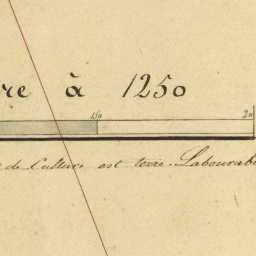 re à 1250
150 2
de Culture est terre Labourab